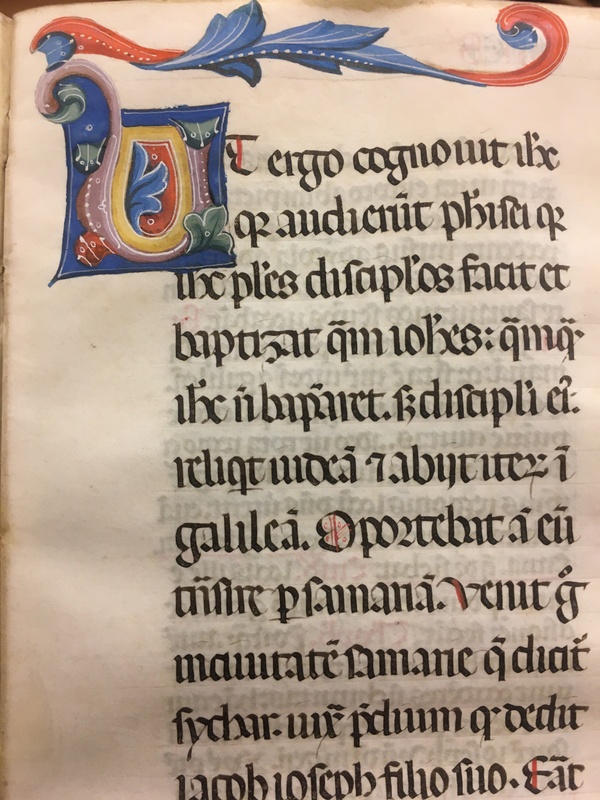 UT ergo cognouit ih̄c
qꝛ audierūt ph̄isei qꝛ
ih̄c pl̄es discipl̄os facit et
baptizat q̄m ioh̄es: q̄mq̄ꝫ
ih̄c n̄ bap̄aret. s̄ꝫ discipl̄i eī.
reliq̄t iudeā ⁊ abijt iteꝝ ī
galileā. Oportebat ā eū
trāsire ꝑ samariā. Venit gͦ
inciuitatē samarie q̄ dicit̄
sychar. iux̄ p̄dium qꝛ dedit
iacob ioseph filio suo. Eāt